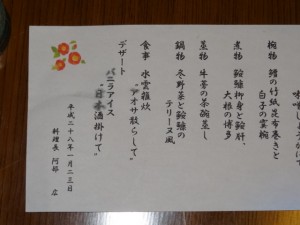 椀物 鱈の竹紙昆布巻きと
白子の雲椀
煮物 鮟鱇柳身と鮟肝、
大根の博多
蒸物 牛蒡の茶碗蒸し
鍋物 冬野菜と鮟鱇の
テリーヌ風
食事 水雲雑炊
"アオサ散らして"
デザート
バニラアイス
"日本酒掛けて"
平成二十八年一月二三日
料理長 阿部